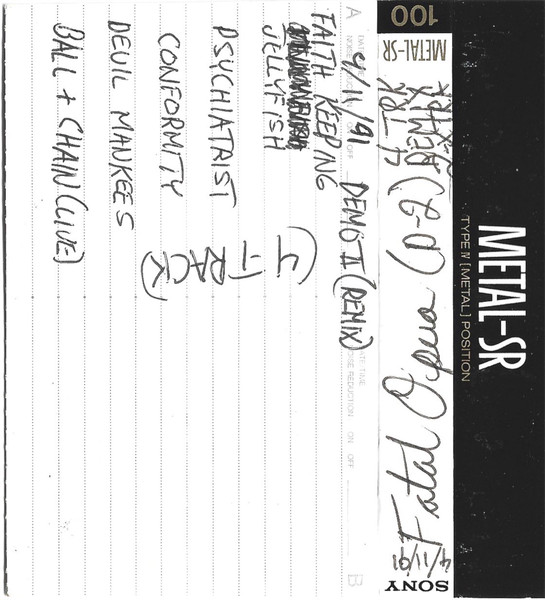 METAL-SR
TYPE IV [METAL] POSITION
100
METAL-SR
REMIX
Fatal Opera (D-2)
4/11/91
SONY
A
B
4/11/91 DEMO II (REMIX)
DATE/TIME
NOISE REDUCTION ON OFF
FAITH KEEPING
JELLYFISH
PSYCHIATRIST
CONFORMITY
DEVIL MANKEES
BALL + CHAIN (LIVE)
(4-TRACK)